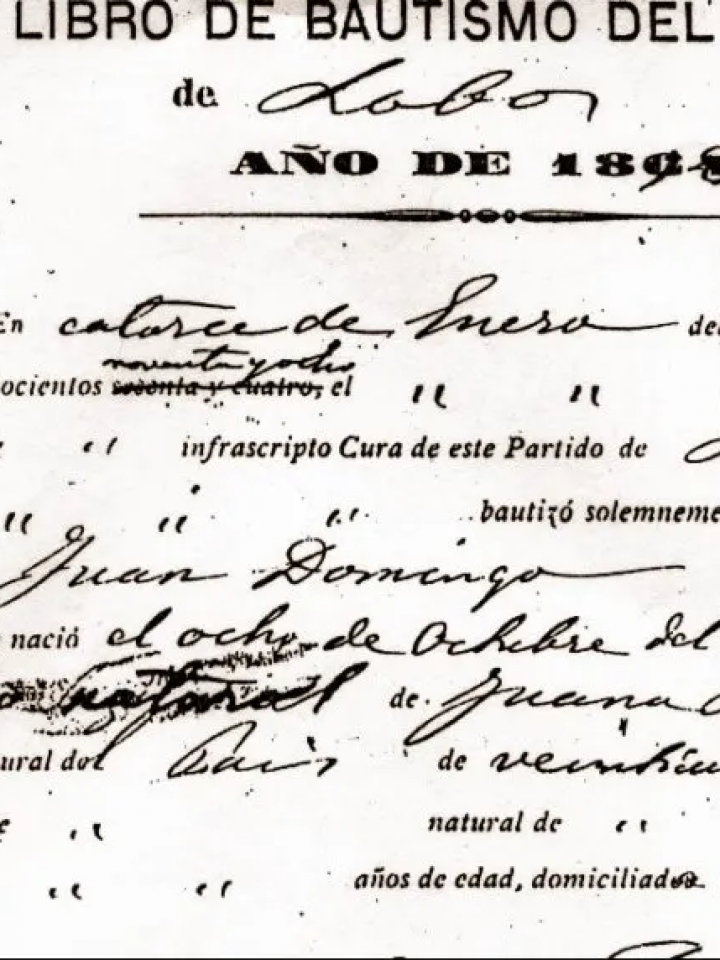 LIBRO DE BAUTISMO DEL
de Lobos
AÑO DE 1898
En catorce de Enero de
noventa y ocho
ocientos sesenta y cuatro, el " "
" " infrascripto Cura de este Partido de
" " " bautizó solemneme
Juan Domingo
nació el ocho de Octubre del
natural de Juana
ural del Pais de
" natural de "
" " años de edad, domiciliados